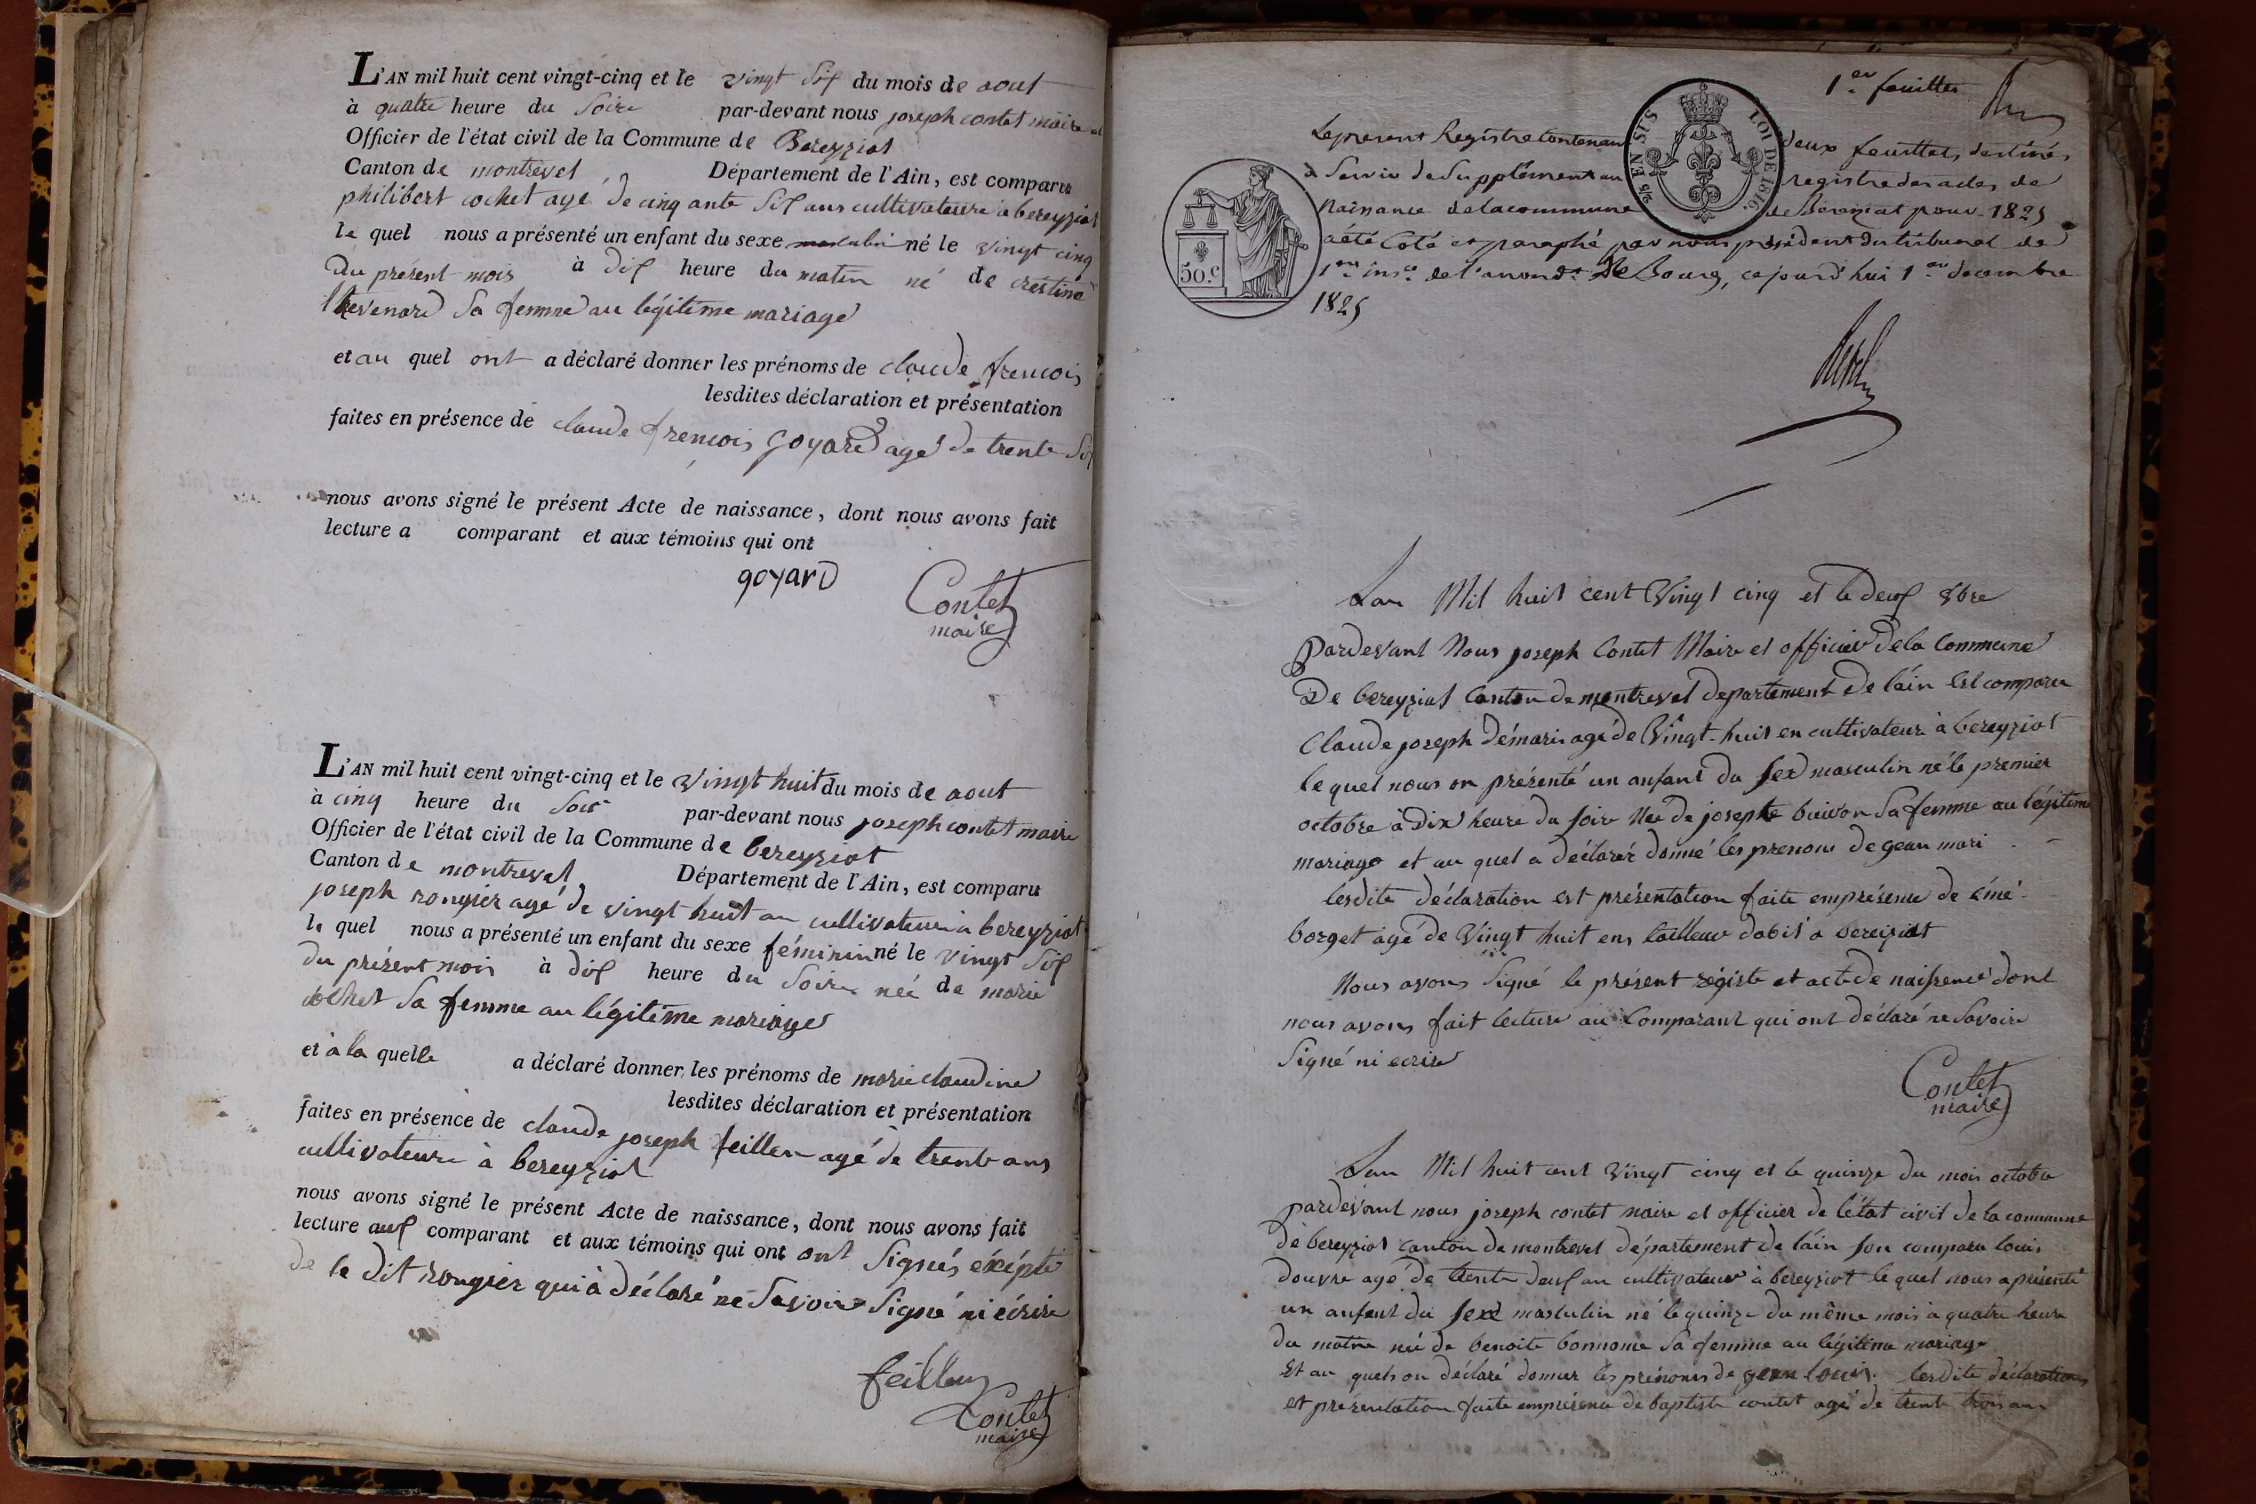 L'AN mil huit cent vingt-cinq et le vingt six du mois de aout
à quatre heure du Soire par-devant nous joseph contet maire et
Officier de l'état civil de la Commune de Bereyziat
Canton de montrevel Département de l'Ain, est comparu
philibert cochet agé de cinq ante six ans cultivateure à bereyziat
le quel nous a présenté un enfant du sexe masculin né le vingt cinq
du présent mois à dix heure du matin né de crestine
thevenard Sa femme au légitime mariage
et au quel ont a déclaré donner les prénoms de claude frencois
lesdites déclaration et présentation
faites en présence de claude frencois goyard agé de trente six
nous avons signé le présent Acte de naissance, dont nous avons fait
lecture a comparant et aux témoins qui ont
goyard
Contet
maire
L'AN mil huit cent vingt-cinq et le vingt huit du mois de aout
à cinq heure du Soir par-devant nous joseph contet maire
Officier de l'état civil de la Commune de bereyziat
Canton de montrevel Département de l'Ain, est comparu
joseph rongier agé de vingt huit an cultivateur à bereyziat
le quel nous a présenté un enfant du sexe féminin né le vingt six
du présent mois à dix heure du Soire née de marie
cochet Sa femme au légitème mariage
et à la quelle a déclaré donner les prénoms de marie claudine
lesdites déclaration et présentation
faites en présence de claude joseph feillen agé de trente ans
cultivateure à bereyziat
nous avons signé le présent Acte de naissance, dont nous avons fait
lecture aux comparant et aux témoins qui ont ont Signés éxépté
de le dit rongier qui à déclaré ne Savoir Signé ni écrire
feillen
Contet
maire
1er feuillet
Le present Registre contenant deux feuillets, destinés
à Servir de Supplément au registre des actes de
naisance de la commune de Béreziat pour 1825
a été Coté et paraphé par nous président du tribunal de
1ere insce de l'arrondt De Bourg, ce jourd'hui 1er decembre
1825
EN SUS
LOI DE 1816.
50.c
Lan Mil huit cent Vingt cinq et le deux 8bre
Pardevant Nous joseph Contet Maire et officier de la Commune
De bereyziat Canton de montrevel departement de l'ain Est comparu
Claude joseph démari agé de Vingt-huit en cultivateur à bereyziat
le quel nous on présenté un anfant du Sex masculin né le premier
octobre à Dix heure du Soire Née de josephte buivon Sa femme au légitime
mariage et au quel a déclarér donné les prenom de gean mari
lesdite déclaration est présentation faite emprésence de émé
borget agé de Vingt huit ens tailleur dabit à bereiziat
Nous avons Signé le présent régiste et acte de naissence dont
nous avons fait lecture au Comparant qui ont déclaré ne Savoire
Signé ni ecrire
Contet
maire
Lan Mil huit cent Vingt cinq et le quinze du mois octobre
pardevant nous joseph contet maire et officier de l'état civil de la commune
de bereyziat canton de montrevel département de l'ain Son comparu louis
douvre agé de trente deux an cultivateur à bereyziat le quel nous a présenté
un anfent du Sexe masculin né le quinze du même mois à quatre heure
du matin né de benoite bonnome Sa femme au légitime mariage
Et au quels on déclaré donner les prénoms de gean louis. lesdite déclarations
et présentation faite emprésence de baptiste contet agé de trente trois ans